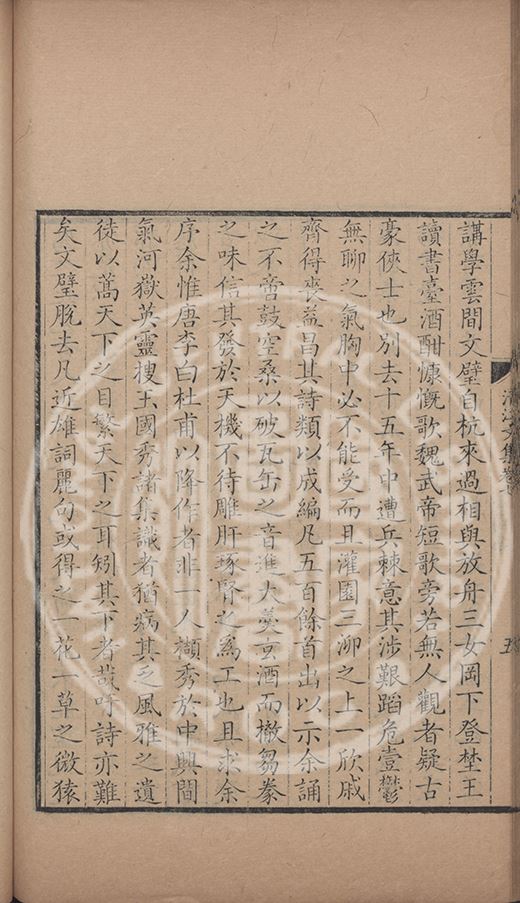 講學雲間文璧自杭來過相與放舟三女岡下登埜王
讀書臺酒酣慷慨歌魏武帝短歌旁若無人觀者疑古
豪俠士也別去十五年中遭兵棘意其涉艱蹈危壹鬱
無聊之氣胸中必不能受而且灌園三泖之上一欣戚
齊得喪益昌其詩類以成編凡五百餘首出以示余誦
之不啻鼓空桑以破瓦缶之音進大羹玄酒而撤芻豢
之味信其發於天機不待雕肝琢腎之爲工也且求余
序余惟唐李白杜甫以降作者非一人擷秀於中興間
氣河嶽英靈捜玉國秀諸集識者猶病其之風雅之遺
徒以蒿天下之目繁天下之耳矧其下者哉吁詩亦難
矣文璧脫去凡近雄詞麗句或得之一花一草之微猿